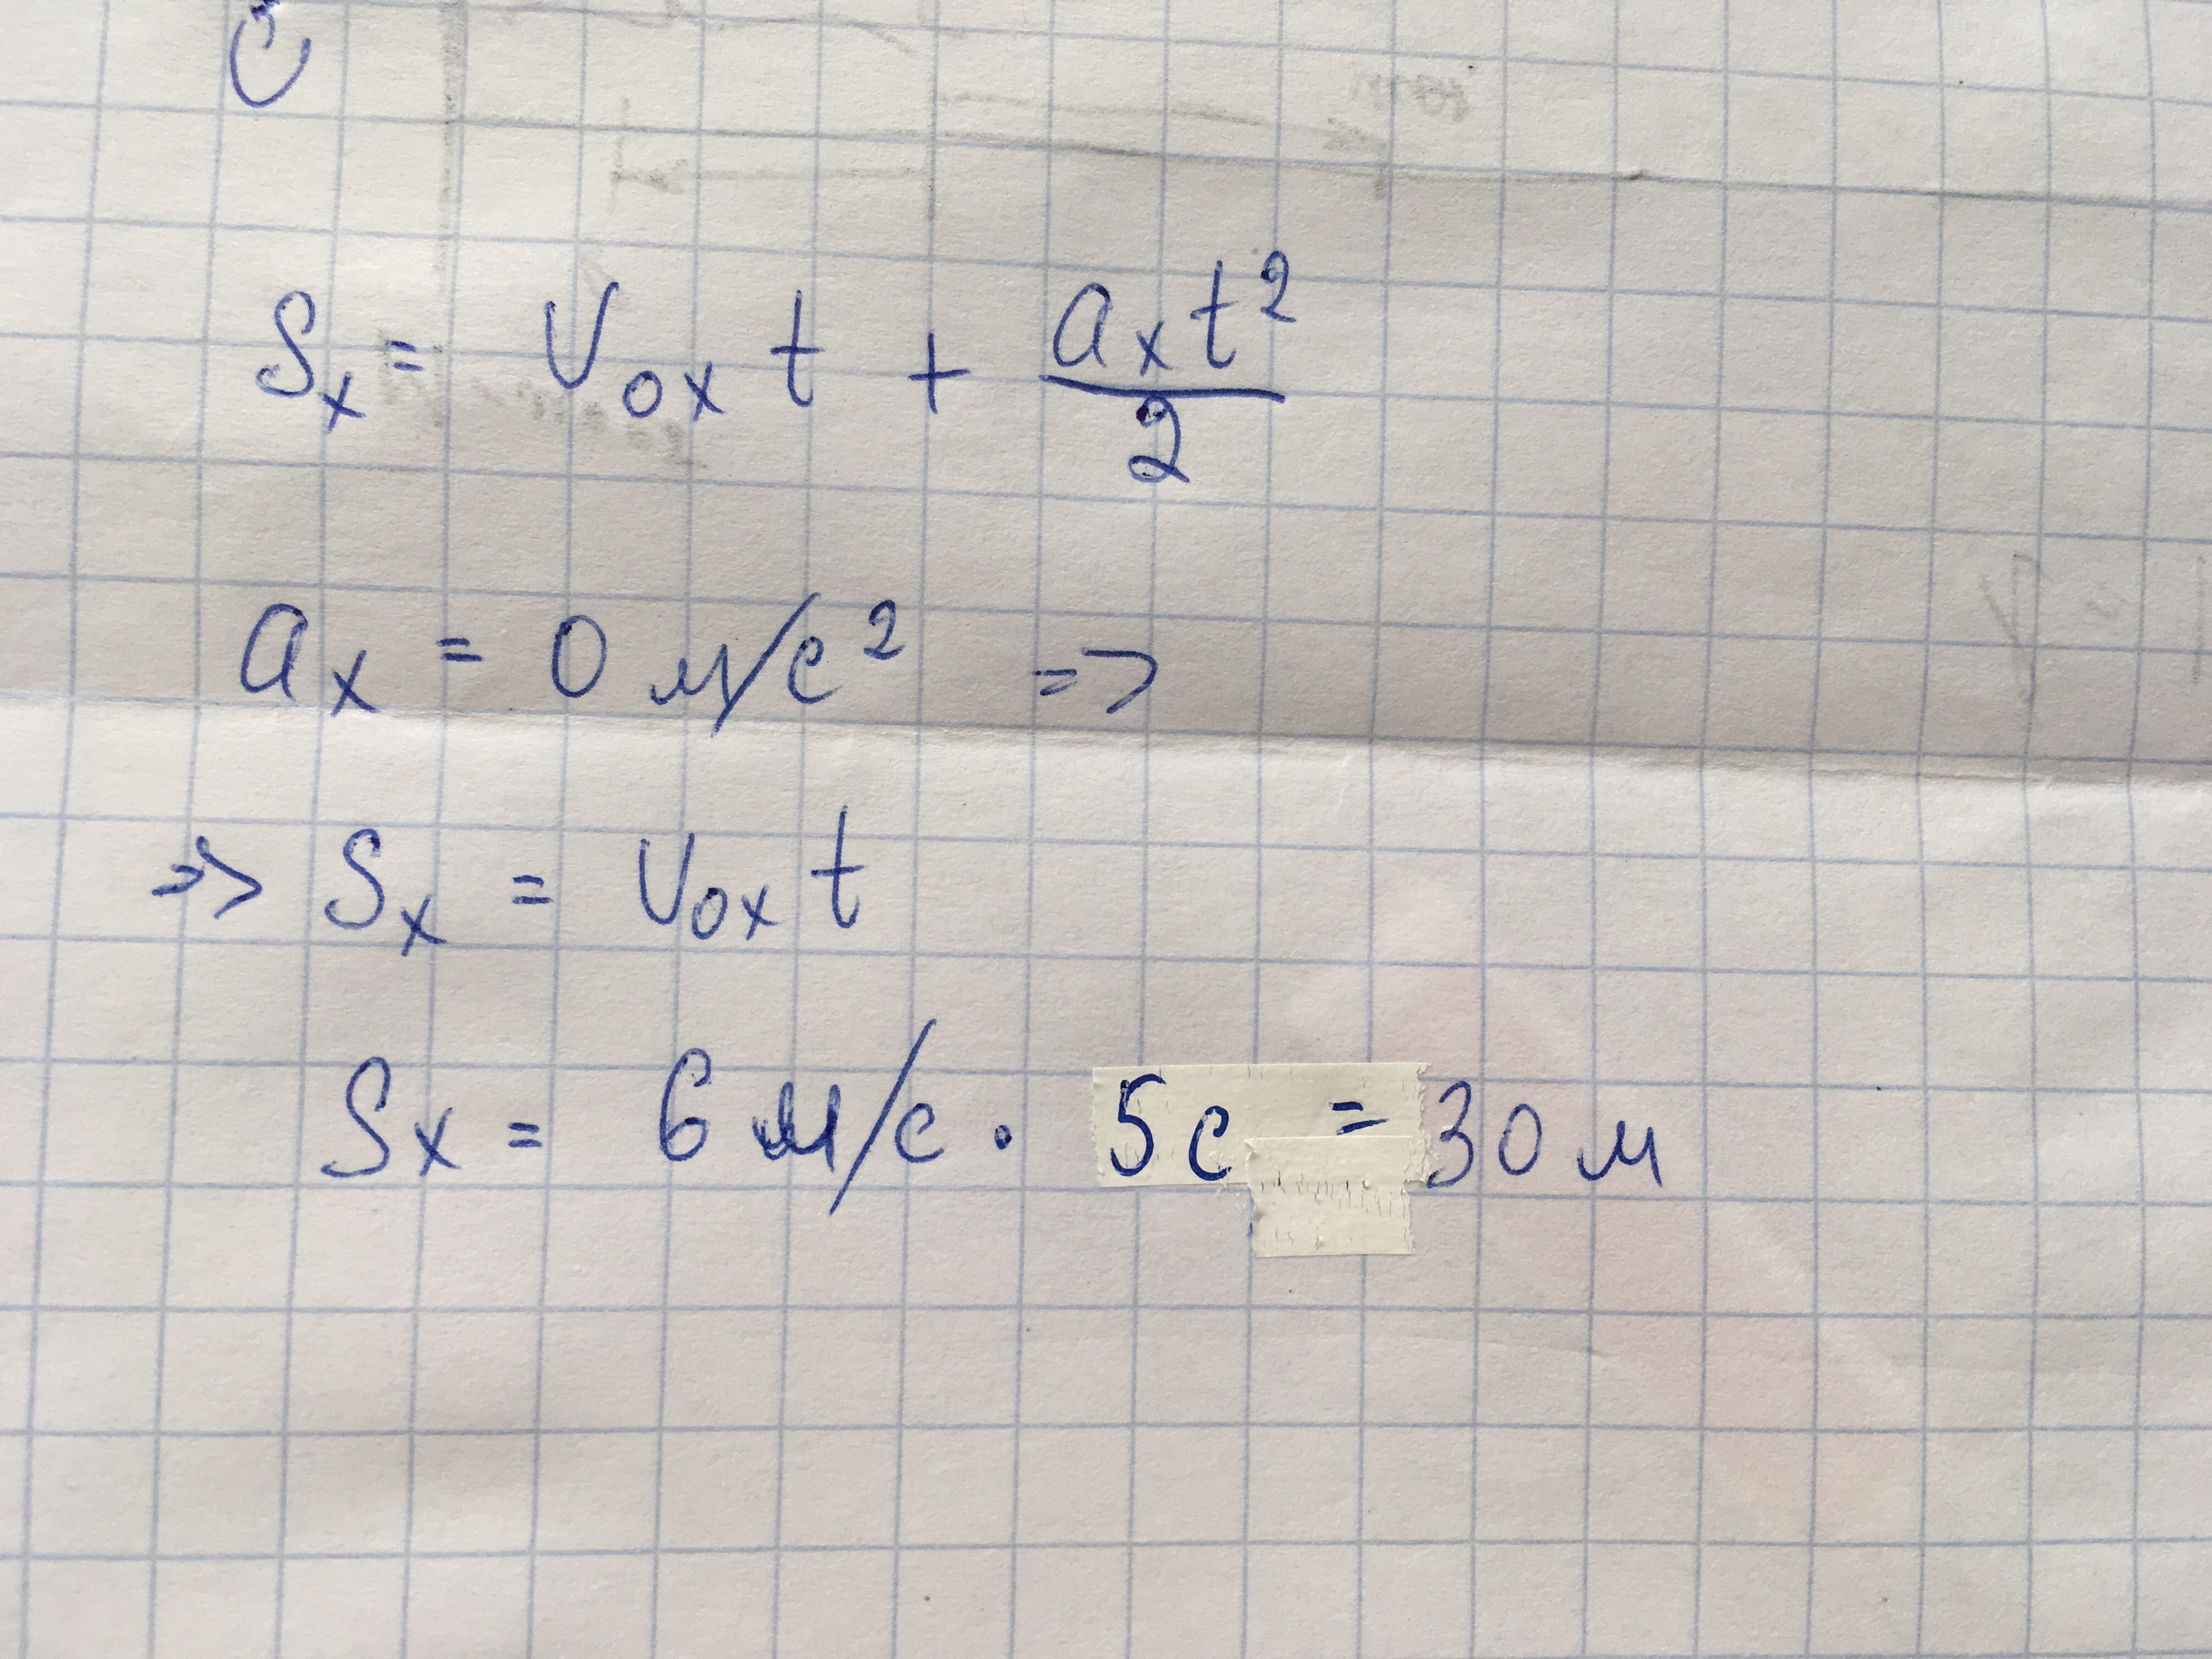 Sₓ = V₀ₓ t + aₓt²/2
aₓ = 0 м/с² =>
=> Sₓ = V₀ₓ t
Sₓ = 6 м/с · 5с = 30 м